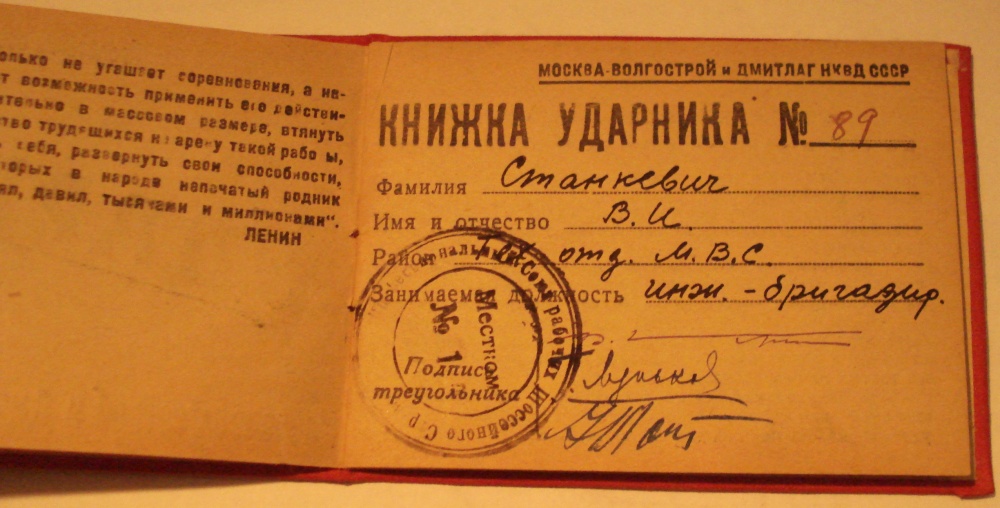 олько не угашает соревнования, а на-
т возможность применить его действи-
ительно в массовом размере, втянуть
тво трудящихся на арену такой работы,
себя, развернуть свои способности,
торых в народе непочатый родник
ял, давил, тысячами и миллионами".
ЛЕНИН
МОСКВА-ВОЛГОСТРОЙ и ДМИТЛАГ НКВД СССР
КНИЖКА УДАРНИКА № 89
Фамилия Станкевич
Имя и отчество В. И.
Район отд. М.В.С.
Занимаемая должность инж.-бригадир.
Подписи
треугольника
рабочих Шоссейного
Местком
№ 1